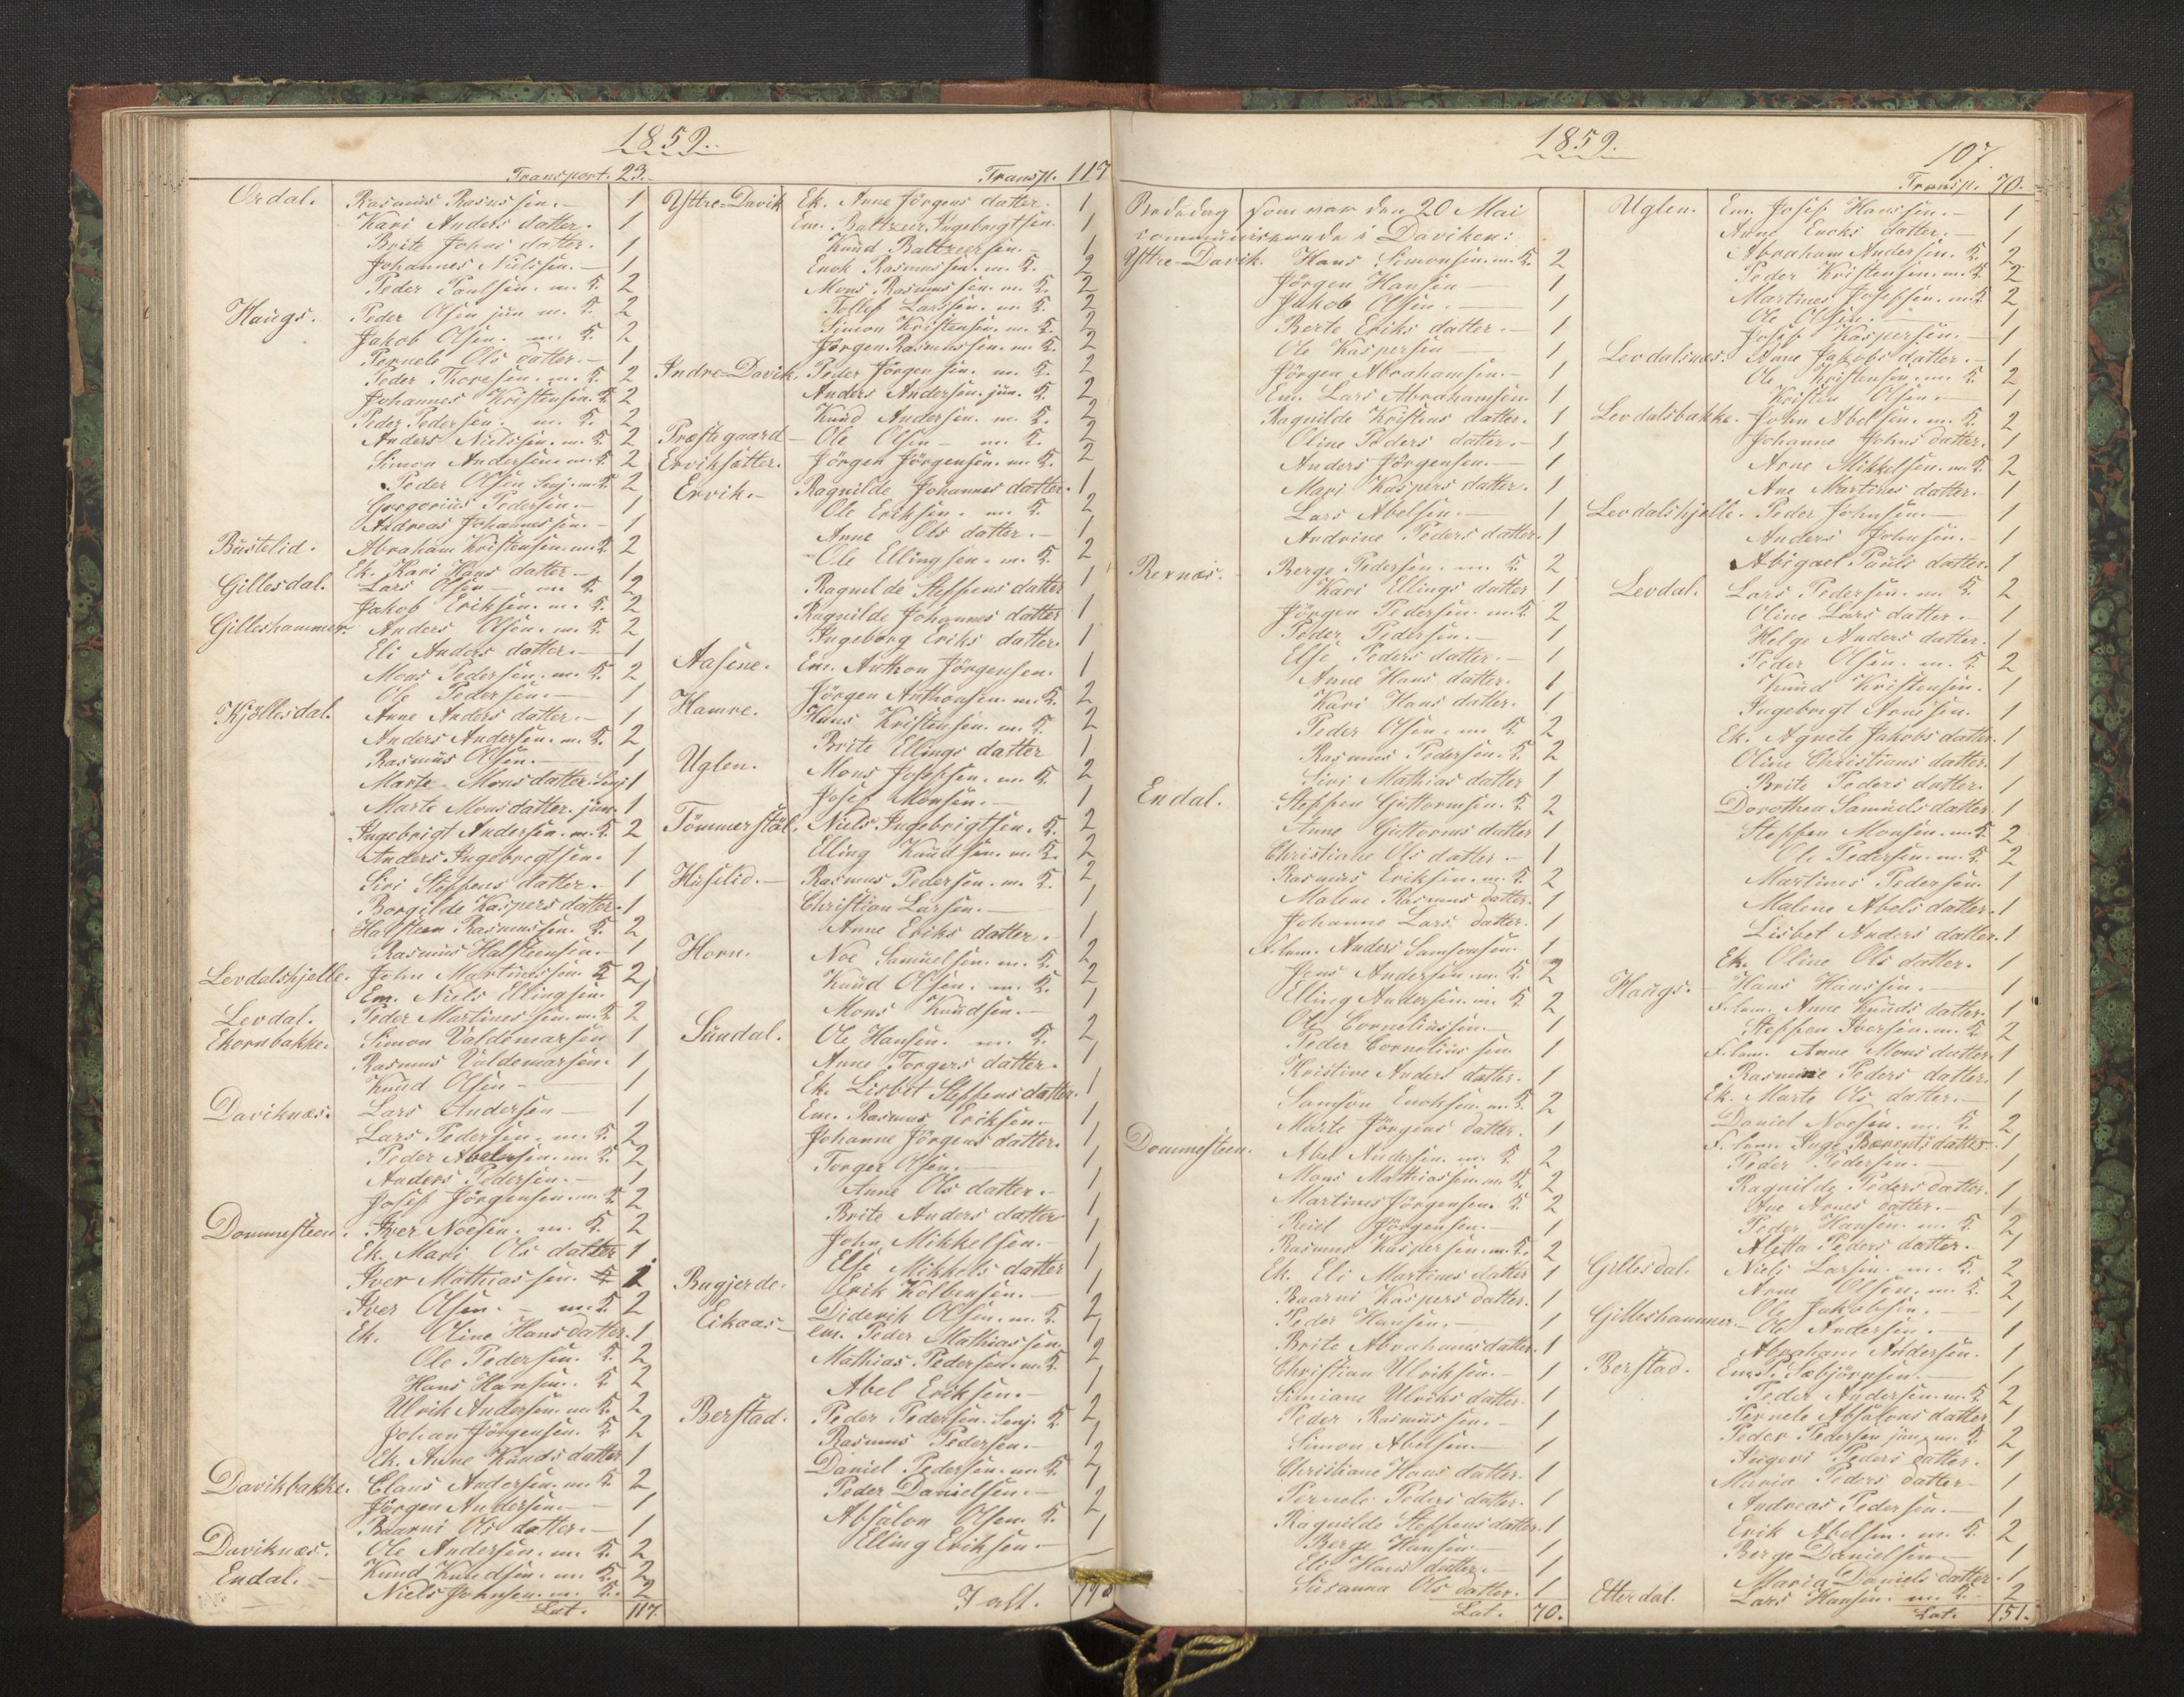 1859.
Transport. 23.
Ordal. Rasmus Rasmussen. 1
Kari Anders datter. 1
Brite Johns datter. 1
Johannes Nielssen. 1
Peder Paulsen. m. K. 2
Haugs. Peder Olsen jun m. K. 2
Jakob Olsen. m. K. 2
Pernele Ols datter. 1
Peder Thoresen. m. K. 2
Johannes Kristensen. K. 2
Peder Pedersen. m. K. 2
Anders Nielssen. m. K. 2
Simon Andersen. m. K. 2
Peder Olsen Senj. m. K. 2
Gregorius Pedersen. 1
Andreas Johannessen. 1
Bustelid. Abraham Kristensen. m. K. 2
Ek. Kari Hans datter. 1
Gillesdal. Lars Olsen m. K. 2
Jakob Eriksen. m. K. 2
Gilleshammer. Anders Olsen. m. K. 2
Eli Anders datter. 1
Mons Pedersen. m. K. 2
Ole Pedersen. 1
Kjöllesdal. Anne Anders datter. 1
Anders Andersen. m. K. 2
Rasmus Olsen. 1
Marte Monsdatter. Senj 1
Marte Monsdatter. jun. 1
Ingebrigt Andersen. m. K. 2
Anders Ingebregtsen. 1
Siri Steffens datter. 1
Borgilde Kaspers datter. 1
Halsteen Rasmussen. K. 2
Rasmus Halsteensen. 1
Levdalshjelle. John Martinussen. K. 2
Em. Niels Ellingsen. 1
Levdal. Peder Martinessen. m. K. 2
Ekornbakke. Simon Valdemarsen 1
Rasmus Valdemarsen. 1
Knud Olsen 1
Daviknæs. Lars Andersen 1
Lars Pedersen. m. K. 2
Peder Abelsen. m. K. 2
Anders Pedersen. 1
Josef Jörgensen. m. K. 2
Dommesteen. Iver Noesen. m. K. 2
Ek. Mari Ols datter 1.
Iver Mathiassen.
Iver Olsen. m. K. 2
Ek. Oline Hansdatter. 1
Ole Pedersen. K. 2
Hans Hansen. K. 2
Ulrik Andersen. m. K. 2
Johan Jörgensen. K. 2
Ek. Anne Knuds datter 1
Davikbakke. Claus Andersen. m. K. 2
Jörgen Andersen. 1
Baarni Ols datter. 1
Daviknæs. Ole Andersen. m. K. 2
Endal. Knud Knudsen. m. K. 2
Niels Johnsen. m. K. 2
Lat. 117.
Transp. 117
Yttre-Davik Ek. Anne Jörgens datter. 1
Em. Baltzer Ingebrigtsen. 1
Knud Baltzersen. 1
Enok Rasmussen. m. K. 2
Mons Rasmussen. m. K. 2
Tollef Larssen. m. K. 2
Simon Kristensen. m. K. 2
Jörgen Rasmussen. m. K. 2
Indre-Davik. Peder Jörgensen. m. K. 2
Anders Andersen. jun. K. 2
Knud Andersen. m. K. 2
Præstegaard Ole Olsen m. K. 2
Erviksætter. Jörgen Jörgensen. m. K. 2
Ervik. Ragnilde Johannes datter. 1
Ole Eriksen. m. K. 2
Anne Ols datter. 1
Ole Ellingsen. m. K. 2
Ragnilde Steffens datter 1
Ragnilde Johannes datter 1
Ingeborg Eriks datter. 1
Aasene. Em. Anthon Jörgensen. 1
Jörgen Anthonsen. m. K. 2
Hamre. Hans Kristensen. m. K. 2
Brite Ellings datter 1
Uglen. Mons Josefsen. m. K. 2
Josef Monsen. 1
Tömmerstöl. Niels Ingebrigtsen. K. 2
Elling Knudsen. m. K. 2
Huselid. Rasmus Pedersen. m. K. 2
Christian Larsen. 1
Anne Eriks datter. 1
Horn. Noe Samuelsen. m. K. 2
Knud Olsen. m. K. 2
Mons Knudsen. 1
Sundal. Ole Hansen. m. K. 2
Anne Torgers datter. 1
Ek. Lisbet Steffens datter. 1
Em. Rasmus Eriksen. 1
Johanne Jörgens datter. 1
Torger Olsen. 1
Anne Ols datter. 1
Brite Anders datter 1
John Mikkelsen. 1
Else Mikkels datter 1
Bugjerde. Erik Kolbensen. 1
Eikaas Diderik Olsen. m. K. 2
em. Peder Mathiassen. 1
Mathias Pedersen. m. K. 2
Abel Eriksen. 1
Berstad. Peder Pedersen. Senj. K. 2
Rasmus Pedersen. 1
Daniel Pedersen. m. K. 2
Peder Danielsen. 1
Absalon Olsen. K. 2
Elling Eriksen. 1
I alt.
1859.
Bededag som var den 20 Mai
communiserende i Daviken:
Yttre-Davik. Hans Simonsen. m. K. 2
Jörgen Hansen 1
Jakob Olsen. 1
Berte Eriks datter. 1
Ole Kaspersen 1
Jörgen Abrahamsen. 1
Em. Lars Abrahamsen. 1
Ragnilde Kristens datter. 1
Oline Peders datter. 1
Anders Jörgensen. 1
Mari Kaspers datter. 1
Lars Abelsen. 1
Andrine Peders datter. 1
Rexnæs. Berge Pedersen. m. K. 2
Kari Ellings datter 1
Jörgen Pedersen. m. K. 2
Peder Pedersen. 1
Else Peders datter. 1
Anne Hans datter. 1
Kari Hans datter. 1
Peder Olsen. m. K. 2
Rasmus Pedersen. K. 2
Siri Mathias datter 1
Endal. Steffen Guttormsen. K. 2
Anne Guttorms datter 1
Christiane Ols datter. 1
Rasmus Eriksen. m. K. 2
Malene Rasmus datter. 1
Johanne Lars datter. 1
F. lem. Anders Samsonsen. 1
Jens Andersen. m. K. 2
Elling Andersen. m. K. 2
Ole Corneliussen. 1
Peder Corneliussen. 1
Kristine Anders datter. 1
Samson Enoksen. m. K. 2
Marte Jörgens datter. 1
Dommesteen. Abel Andersen. m. K. 2
Mons Mathiassen. m. K. 2
Martines Jörgensen. K. 2
Reid Jörgensen. 1
Rasmus Kaspersen. m. K. 2
Ek. Eli Martines datter 1
Baarni Kaspers datter. 1
Peder Hansen. 1
Brite Abrahams datter. 1
Christian Ulriksen. 1
Simiane Ulriks datter. 1
Peder Rasmussen. 1
Simon Abelsen. 1
Christiane Hans datter. 1
Pernele Peders datter. 1
Ragnilde Steffens datter. 1
Berge Hansen 1
Eli Hans datter. 1
Susanna Ols datter. 1
Lat. 70.
107.
Transp. 70.
Uglen. Em. Josef Hanssen. 1
Anne Enoks datter. 1
Abraham Andersen. K. 2
Peder Kristensen. m. K. 2
Martines Josefsen. m. K. 2
Ole Olsen. 1
Josef Kaspersen. 1
Levdalsnæs. Anne Jakobs datter. 1
Ole Kristensen. m. K. 2
Kristen Olsen. 1
Levdalsbakke. John Abelsen. m. K. 2
Johanne Johns datter. 1
Arne Mikkelsen. m. K. 2
Ane Martines datter. 1
Levdalshjelle. Peder Johnsen. 1
Anders Johnsen. 1
Abigael Pauls datter. 1
Levdal. Lars Pedersen. m. K. 2
Oline Lars datter. 1
Helge Anders datter. 1
Peder Olsen. m. K. 2
Knud Kristensen. 1
Ingebregt Arnessen. 1
Ek. Agnete Jakobs datter. 1
Oline Christians datter. 1
Brite Peders datter. 1
Dorothea Samuels datter 1
Steffen Monsen. m. K. 2
Ole Pedersen. m. K. 2
Martines Pedersen. 1
Malene Abels datter. 1
Lisbet Anders datter. 1
Ek. Oline Ols datter. 1
Haugs. Hans Hanssen. 1
F. lem. Anne Knuds datter. 1
Steffen Iversen. m. K. 2
F. lem. Anne Mons datter 1
Rasmine Peders datter. 1
Ek. Marte Ols datter. 1
Daniel Noesen. m. K. 2
F. lem. Inge Berents datter 1
Peder Pedersen. 1
Ragnilde Peders datter. 1
Ane Arnes datter. 1
Peder Hansen. m. K. 2
Aletta Peders datter. 1
Gillesdal. Niels Larsen. m. K. 2
Arne Olsen. m. K. 2
Gilleshammer. Ole Jakobsen. 1
Ole Andersen. 1
Abraham Andersen. 1
Berstad. Em. P. Sæbjörnsen. 1
Peder Andersen. m. K. 2
Pernele Absalons datter 1
Peder Pedersen jun. m. K. 2
Ingeri Peders datter. 1
Maria Peders datter 1
Andreas Pedersen. 1
Erik Abelsen. m. K. 2
Berge Danielsen 1
Maria Daniels datter. 1
Etterdal. Lars Hansen. m. K. 2
Lat. 151.